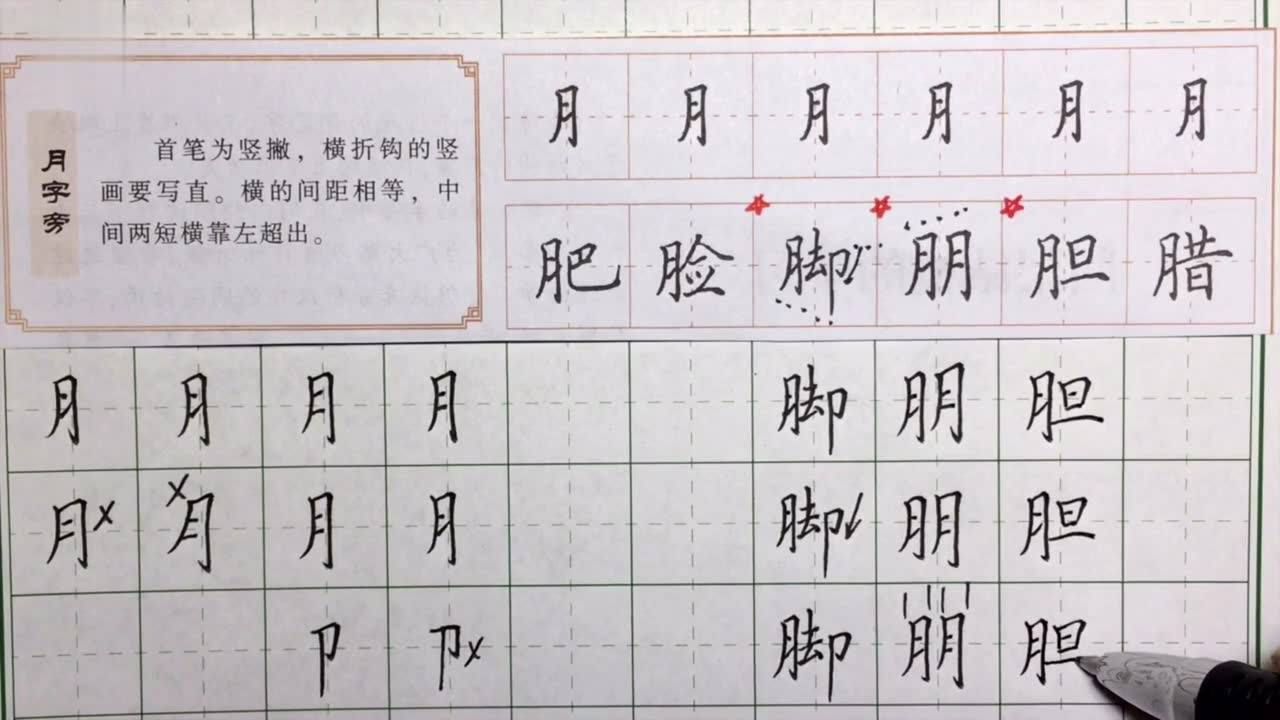 月字旁
首笔为竖撇，横折钩的竖
画要写直。横的间距相等，中
间两短横靠左超出。
月 月 月 月 月 月
肥 脸 脚 朋 胆 腊
月 月 月 月 脚 朋 胆
月 月 月 月 脚 朋 胆
卩 卩 脚 朋 胆